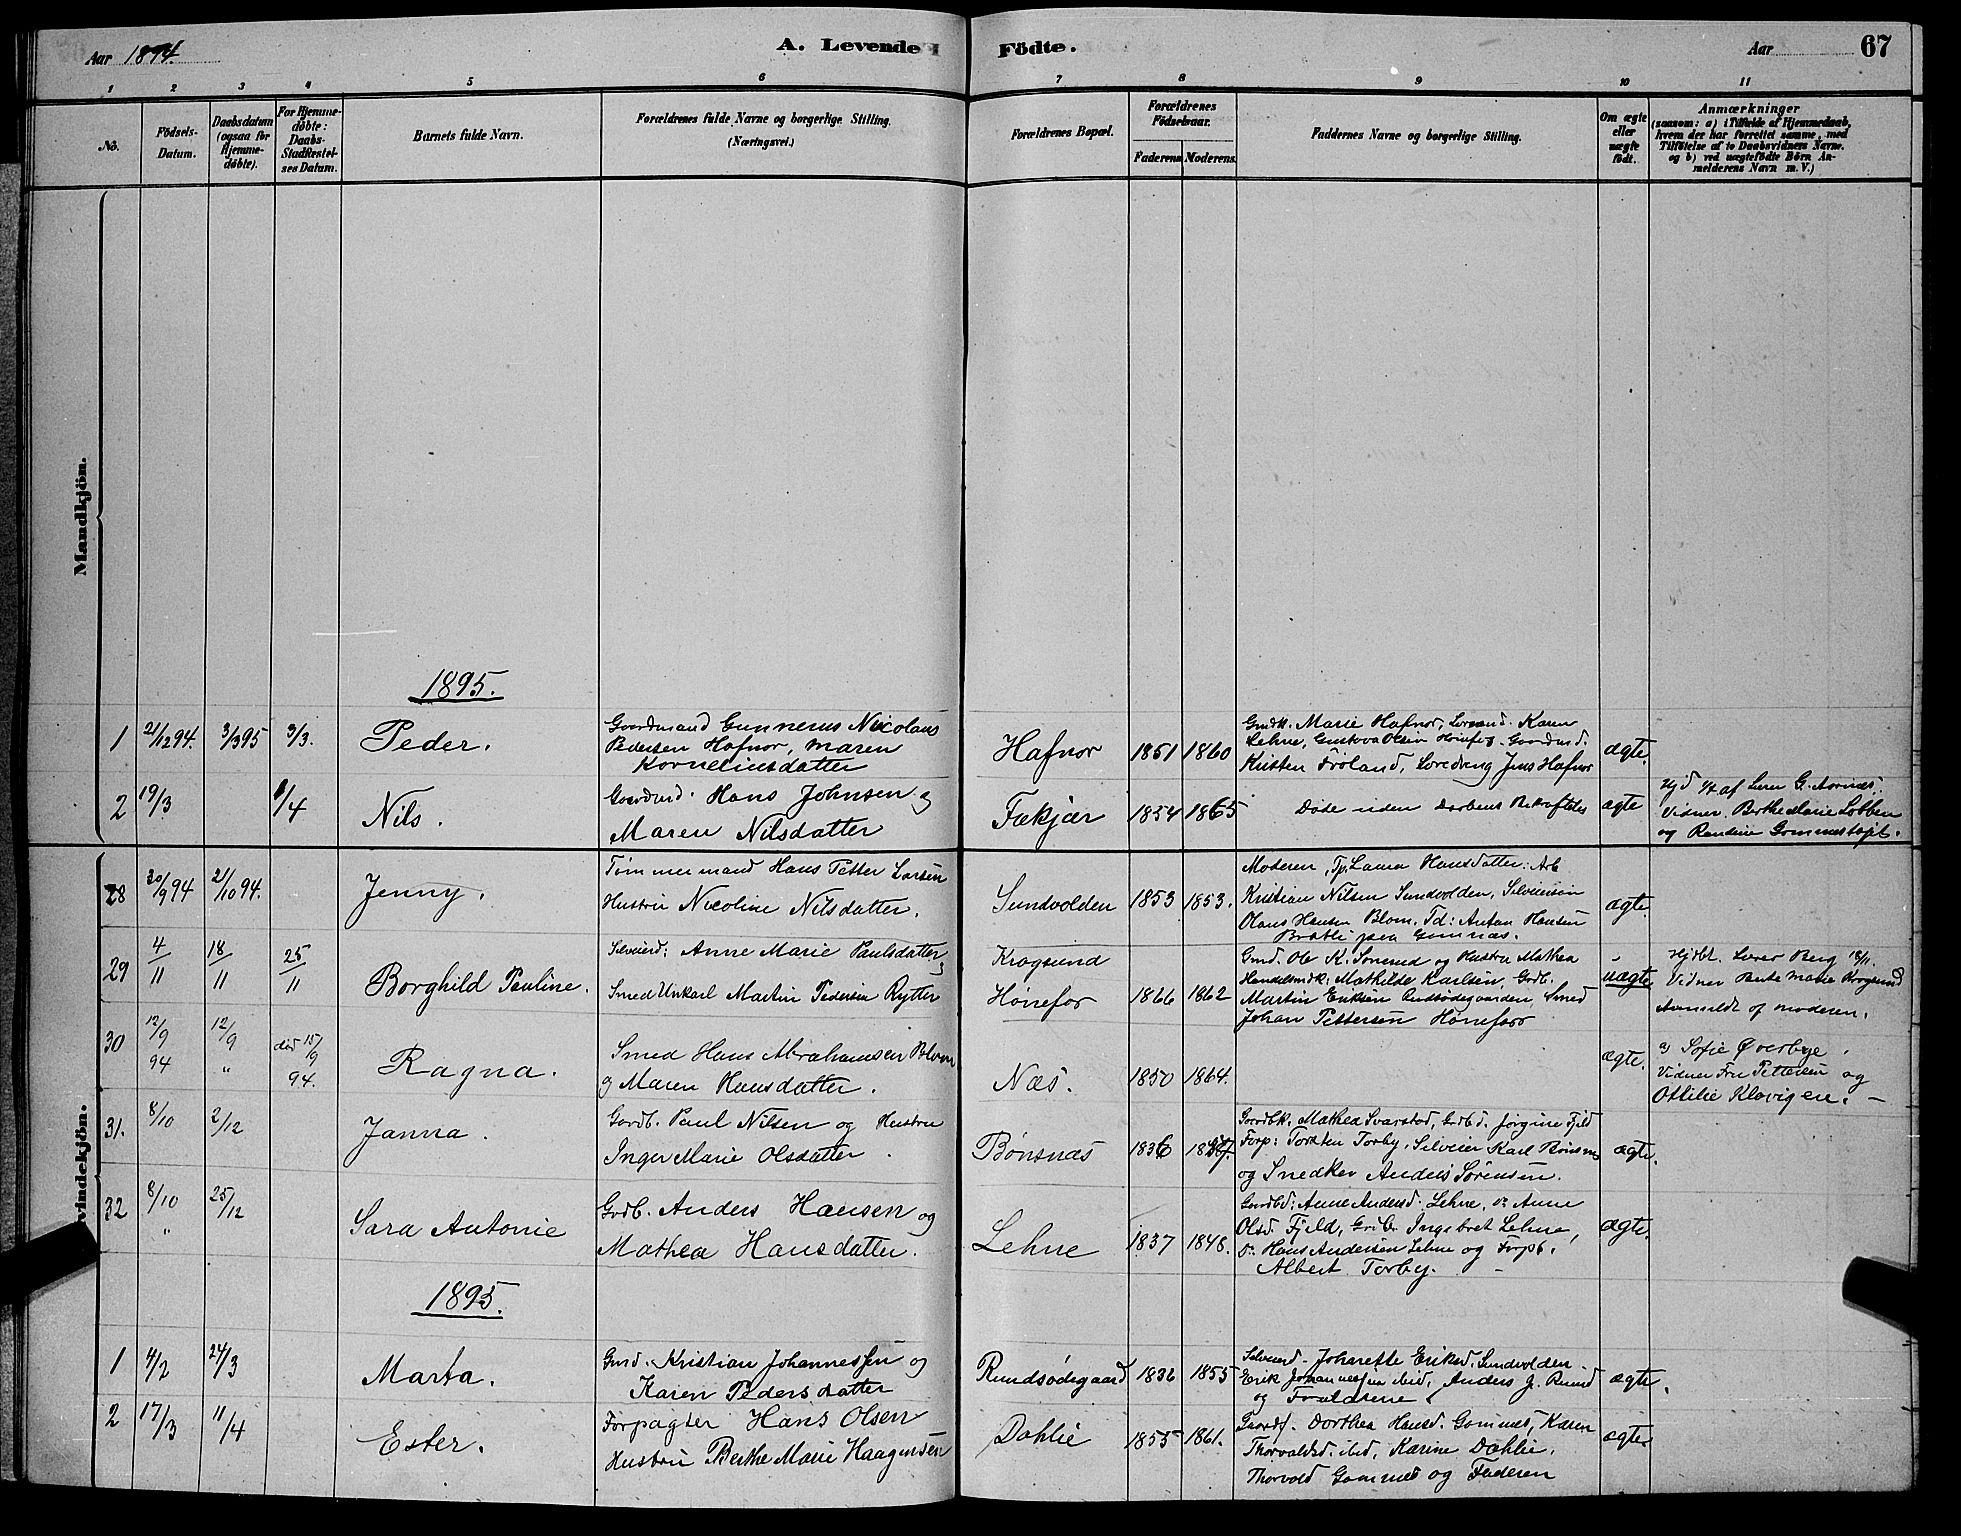 Aar 1894. A. Levende Födte. Aar 67
1 2 3 4 5 6 7 8 9 10 11
No.
Födsels-
Datum.
Daabsdatum
(ogsaa for
Hjemme-
döbte).
For Hjemme-
döbte:
Daabs-
Stadfæstel-
ses Datum.
Barnets fulde Navn.
Forældrenes fulde Navne og borgerlige Stilling.
(Næringsvei.)
Forældrenes Bopæl.
Forældrenes
Födselsaar.
Faderens Moderens.
Faddernes Navne og borgerlige Stilling.
Om ægte
eller
uægte
födt.
Anmærkninger
(saasom: a) i Tilfælde af Hjemmedaab,
hvem der har forrettet samme, med
Tilföielse af to Daabsvidners Navne.
og b) ved uægtefödte Börn An-
melderens Navn m. V.)
Mandkjön.
1895.
1 21/12 94. 3/3 95 3/3. Peder.
Gaardmand Gunnerus Nicolaus
Pedersen Hafnor, Maren
Kornelinsdatter
Hafnor 1851 1860
Gmdk. Marie Hafnor, Karen
Lehne, Gustava Olsen Hønefos. Gaardmd.
Kristen Fröland, Jens Hafnor
ægte.
2 19/3 /4 Nils.
Gaardmd. Hans Johnsen og
Maren Nilsdatter
Fækjær 1854 1865
Døde uden Daabens Bekræftelse
ægte
Hjd af Lærer G. Aarnæs.
Vidner Berthe Marie Løbben
og Gommes
Kvindekjön.
28 30/9 94 21/10 94. Jenny.
Tømmermand Hans Petter Larsen
Hustru Nicoline Nilsdatter.
Sundvolden 1853 1853.
Moderen, Tp. Laura Hansdatter. Arb
Kristian Nilsen Sundvolden, Selveiersøn
Olaus Hansen Blom. Td: Anton Hansen
Bratli paa Gomnæs.
ægte.
29 4/11 18/11 25/11 Borghild Pauline.
Selveierd: Anne Marie Paulsdatter
Smed Unkarl Martin Pedersen Rytter
Krogsund
Hønefos 1866 1862
Gmd. Ole K. Sørerud og Hustru Mathea
Handelsmdk: Mathilde Karlsen, Grdb.
Martin Eriksen Rudsødegaarden, Smed
Johan Pettersen Hønefoss
uægte
Hjdbt. Lærer Berg 18/11.
Vidner Berte Marie Krogsund
Anmeldt af moderen.
30 12/9 94 12/9 " død 15/9 94. Ragna.
Smed Hans Abrahamsen Blom
og Maren Hansdatter.
Næs. 1850 1864.
ægte.
a) Sofie Øverbye.
Vidner Fru Pettersen og
Ottilie Klovigen. –
31. 8/10 2/12 Janna.
Gordb. Paul Nilsen og Hustru
Inger Marie Olsdatter.
Bønsnæs 1836
Gaardbk. Mathea Svarstad, Grdb.d. Jørgine Fjeld
Forp: Torsten Torby, Selveier Karl Bønsnæs
og Snedker Anders Sørensen.
ægte.
32 8/10 " 25/12 Sara Antonie
Grdb. Anders Hansen og
Mathea Hansdatter.
Lehne 1837 1848.
Gordbd: Anne Andersd. Lehne, Do Anne
Olsd. Fjeld, Grdb. Ingebret Lehne,
Do. Hans Andersen Lehne og Forpt.
Albert Torby. –
ægte.
1895.
1 4/2 24/3 Marta.
Gmd. Kristian Johannessen og
Karen Pedersdatter
Rundsødegaard 1836 1855
Selveierd. Johanette Eriksd. Sundvolden
Erik Johannessen ibid, Anders J. Rund
og Forældrene.
ægte.
2 17/3 11/4 Ester.
Forpagter Hans Olsen
Hustru Berthe Marie Haagensen
Dahlie 1855 1861.
Gaardf. Dorthea Hansd. Gomnes, Karen
Thorvaldsd. ibid, Karine Dahlie.
Thorvald Gomnes og Faderen
ægte